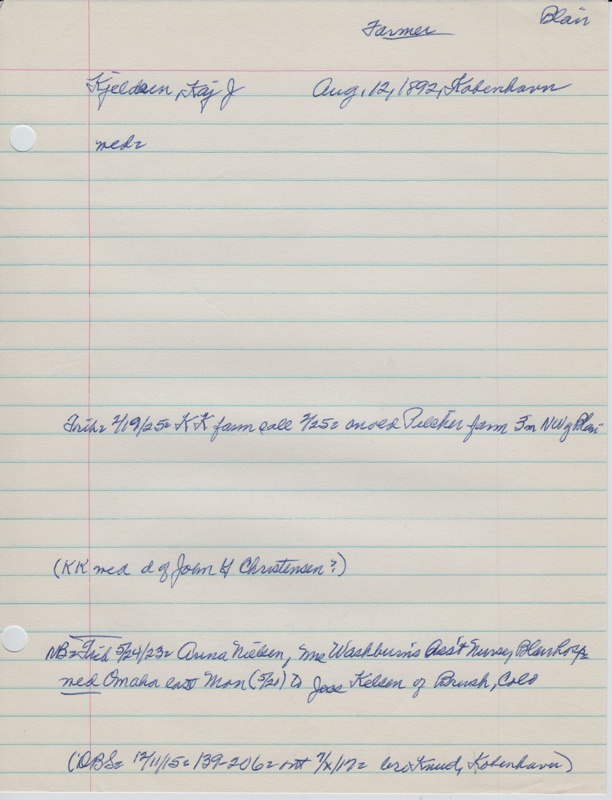 Blair
Farmer
Kjeldsen, Kaj J Aug, 12, 1892, Kobenhavn
med=
Trib= 2/19/25= KK farm sale 2/25= on old Pilcher farm 3m NW of Blair
(KK med d of John H Christensen?)
NB= Trib 5/24/23= Anna Nielsen, Mrs Washburn's Ass't Nurse, Blair hosp=
med Omaha last Mon (5/21) to Jess Kelsen of Brush, Colo
(DBS= 12/11/15= 139-206= ent 7/x/17= bro Knud, Kobenhavn)